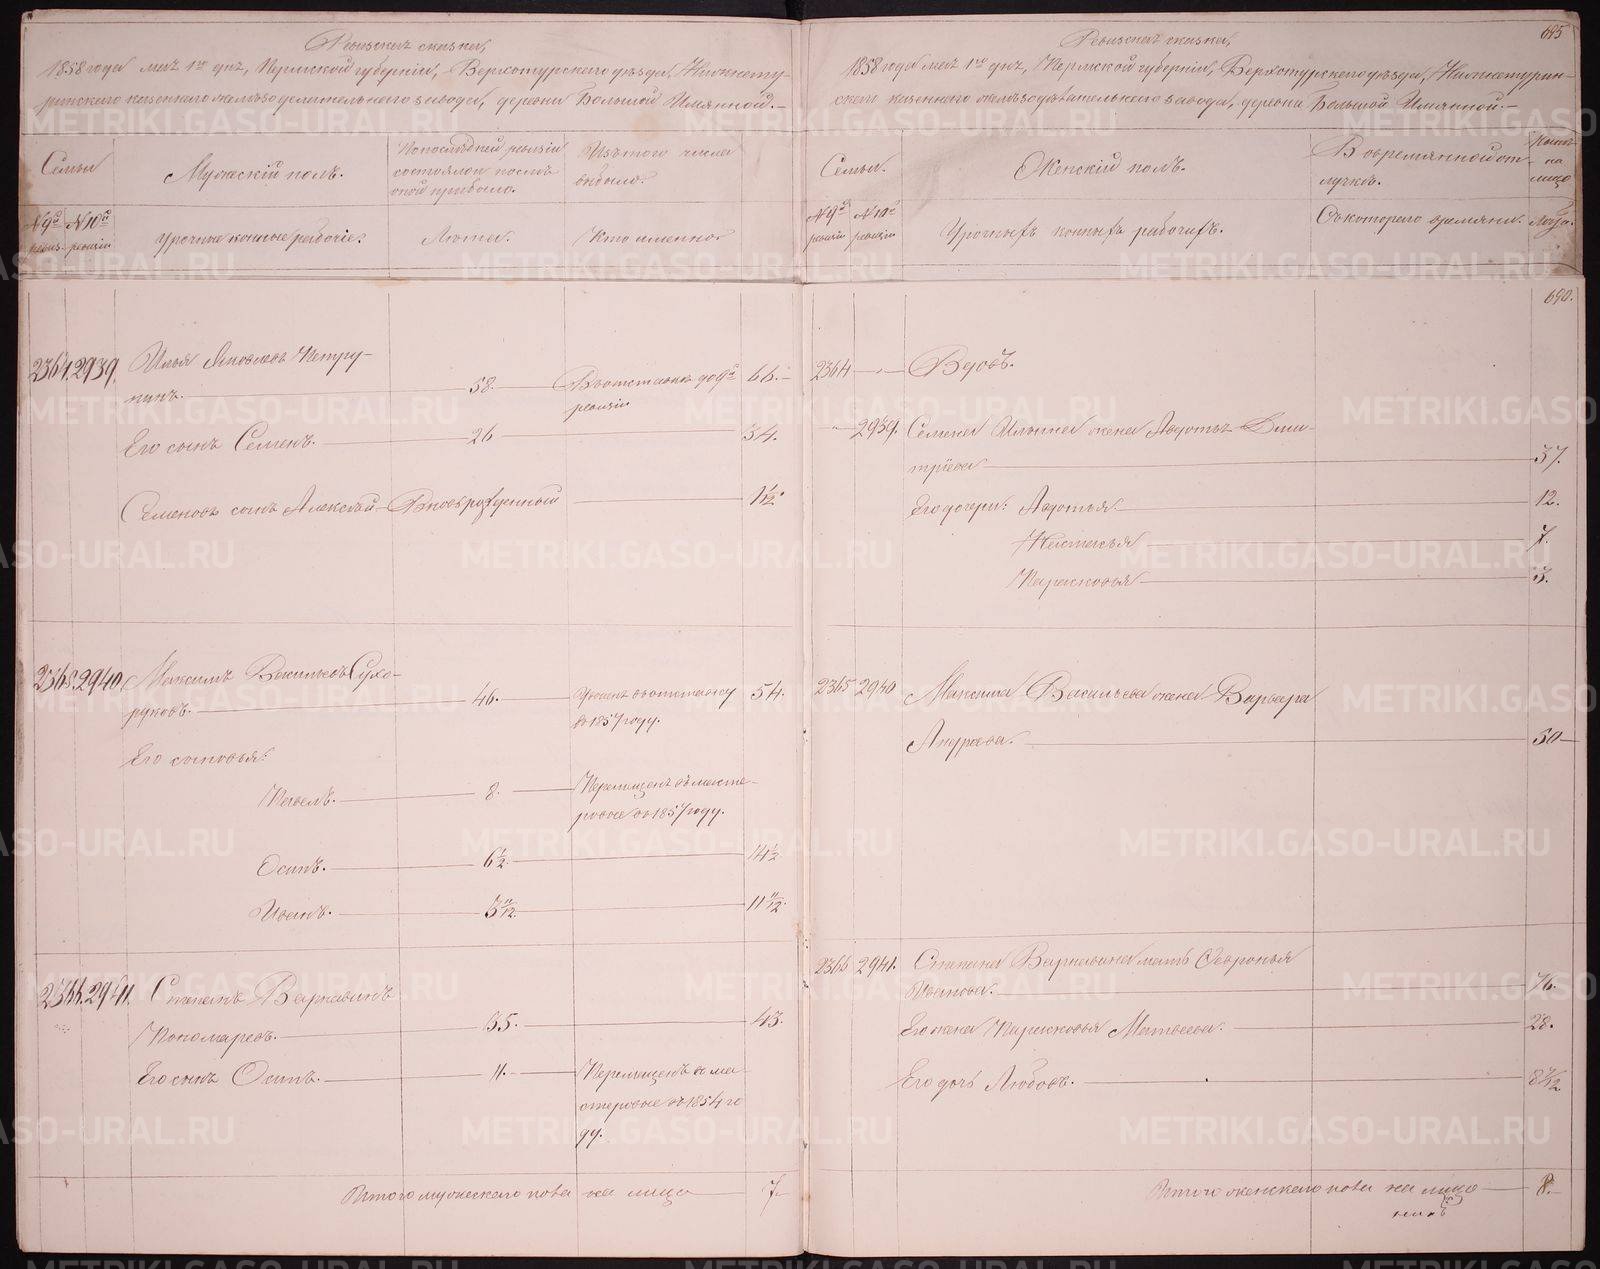 Ревизская сказка,
1858 года мая 1го дня, Пермской губернии, Верхотурского уезда, Нижнету-
ринского казенного железоделательного завода, деревни Большой Имянной.—
Семьи
Мужескій полъ.
По последней ревизіи
состояло и после
оной прибыло.
Изъ того числа
выбыло.
№ 9й ревиз. № 10й ревизіи
Урочные конные рабочіе.
Лета.
Кто именно
2364. 2939. Илья Яковлевъ Петру-
нинъ. 58. В отставке до 9й 66.
ревизіи
Его сынъ Семенъ. 26 34.
Семеновъ сынъ Алексей Вновь рожденный 1 1/12
2365. 2940 Максимъ Васильевъ Сухо-
руковъ. 46. Уволенъ в отставку 54.
въ 1857 году.
Его сыновья:
Павелъ. 8. Перемещенъ въ масте-
ровые въ 1857 году.
Осипъ. 6 1/2. 14 1/2
Иванъ. 3 11/12. 11 11/12.
2366. 2941. Степанъ Варнавинъ
Пономаревъ. 35. 43.
Его сынъ Осипъ. 11. Перемещенъ в ма-
стеровые въ 1854 го
ду.
Итого мужеского пола на лицо 7.
685
Ревизская сказка,
1858 года мая 1го дня, Пермской губерніи, Верхотурского уезда, Нижнетурин-
ского казенного железоделательного завода, деревни Большой Имянной.—
Семьи.
Женскій полъ.
В овремянной от
лучке.
на
лицо
№ 9й ревизіи № 10й ревизіи
Урочныхъ конныхъ рабочихъ.
Съ которого времяни.
Лета.
690.
2364 Вдовъ.
2939. Семена Ильина жена Авдотья Дми-
тріева 37.
Его дочери: Авдотья. 12.
Настасья 7.
Парасковья 3.
2365 2940 Максима Васильева жена Варвара
Андреева. 50
2366 2941. Степана Варнавина мать Февронья
Иванова. 76.
Его жена Парасковья Матвеева. 28.
Его дочь Любовь. 8 7/12
Итого женского пола на лицо 8.
METRIKI.GASO-URAL.RU